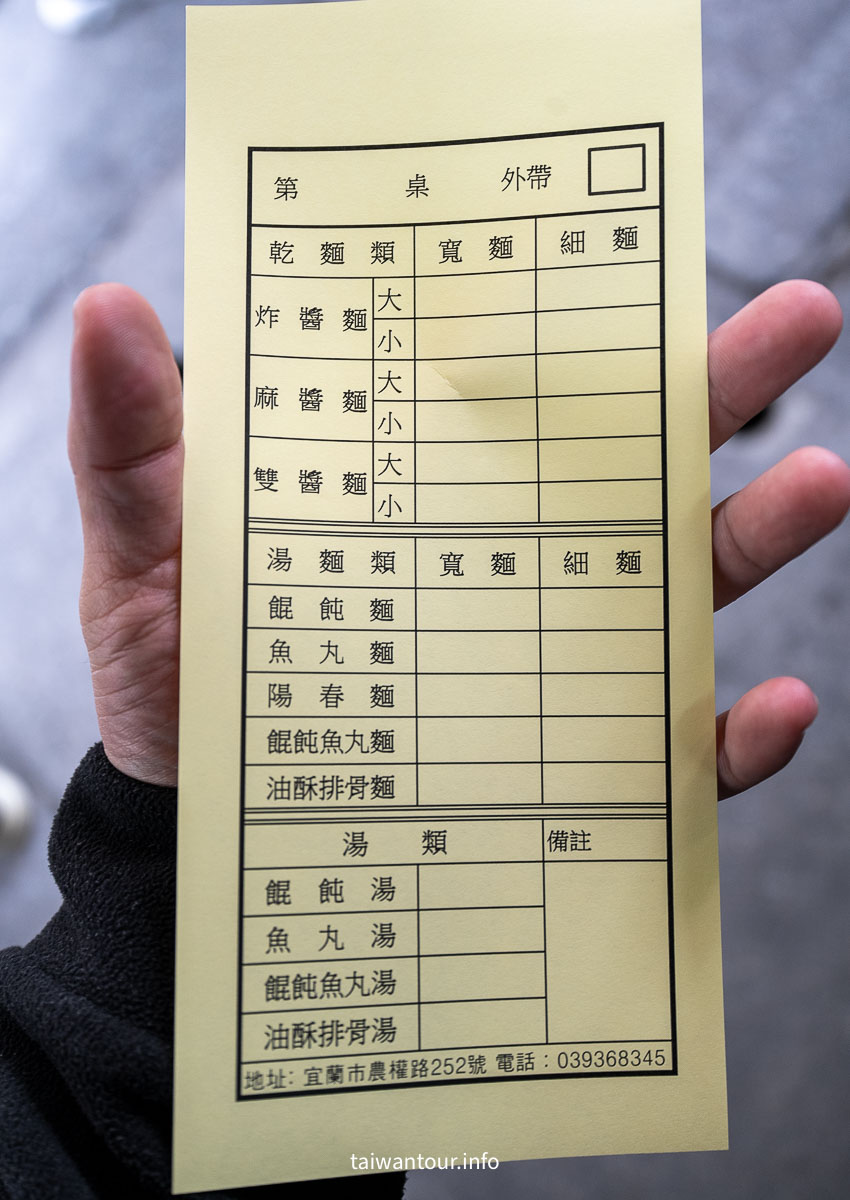 第 桌 外帶
乾麵類 寬麵 細麵
炸醬麵 大
小
麻醬麵 大
小
雙醬麵 大
小
湯麵類 寬麵 細麵
餛飩麵
魚丸麵
陽春麵
餛飩魚丸麵
油酥排骨麵
湯類 備註
餛飩湯
魚丸湯
餛飩魚丸湯
油酥排骨湯
地址: 宜蘭市農權路252號 電話：039368345
taiwantour.info